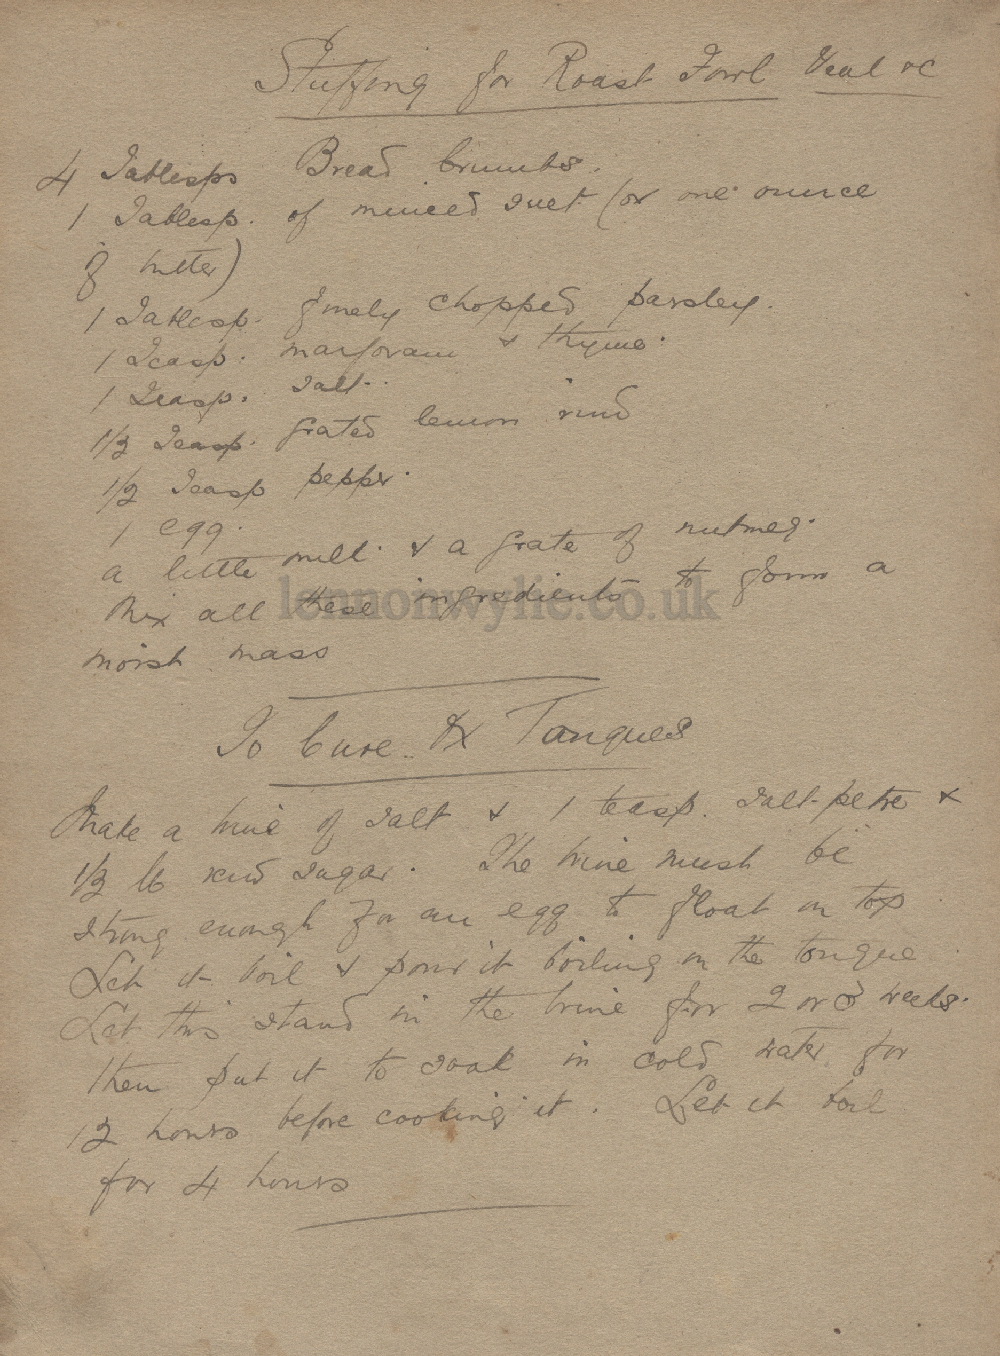 Stuffing for Roast Fowl Veal &c
4 Tablesps Bread Crumbs.
1 Tablesp. of minced suet (or one ounce
of butter)
1 Tablesp. finely chopped parsley.
1 Teasp. marjoram & thyme.
1 Teasp. salt.
1/2 Teasp. grated lemon rind
1/2 Teasp pepper.
1 egg.
a little milk. & a grate of nutmeg.
Mix all these ingredients to form a
lennonwylie.co.uk
moist mass
To Cure Ox Tongues
Make a brine of salt & 1 teasp. salt-petre &
1/2 lb sugar. The brine must be
strong enough for an egg to float on top
Let it boil & pour it boiling on the tongue
Let this stand in the brine for 2 or 3 weeks.
then put it to soak in cold water for
12 hours before cooking it. Let it boil
for 4 hours